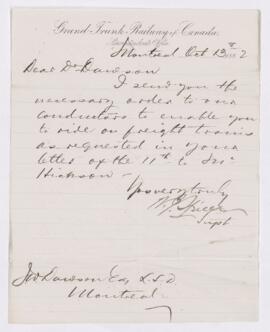 Grand Trunk Railway of Canada
Superintendent's Office
Montreal Oct 13th 1882
Dear Dr Dawson
I send you the
necessary order to our
conductors to enable you
to ride on freight trains
as requested in your
letter of the 11th to Mr
Hickson —
Yours very truly
Supt
J W Dawson Esq L.L.D
Montreal